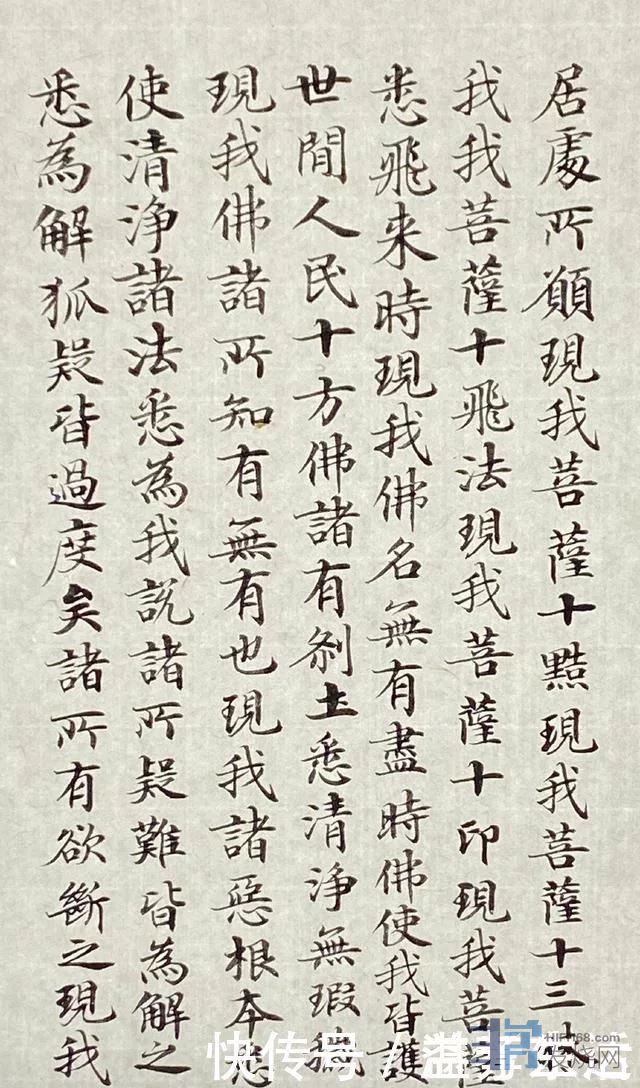 居處所願現我菩薩十黠現我菩薩十三
我我菩薩十飛法現我菩薩十印現我菩薩
悉飛来時現我佛名無有盡時佛使我皆護
世間人民十方佛諸有刹土悉清淨無瑕穢
現我佛諸所知有無有也現我諸惡根本悉
使清淨諸法悉為我説諸所疑難皆為解之
悉為解狐疑皆過度矣諸所有欲斷之現我
快传号/
HIFI168.com
发烧网